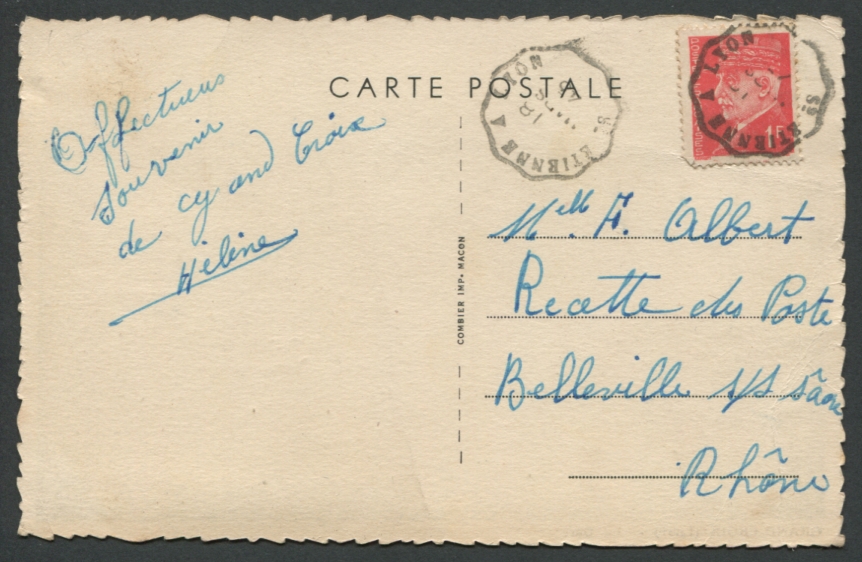 CARTE POSTALE
ST ETIENNE A LYON
18
ST ETIENNE A LYON
Affectueux
Souvenir
de Grand Croix
Hélène
COMBIER IMP. MACON
Melle A. Albert
Recette des Poste
Belleville s/s Sâone
Rhône